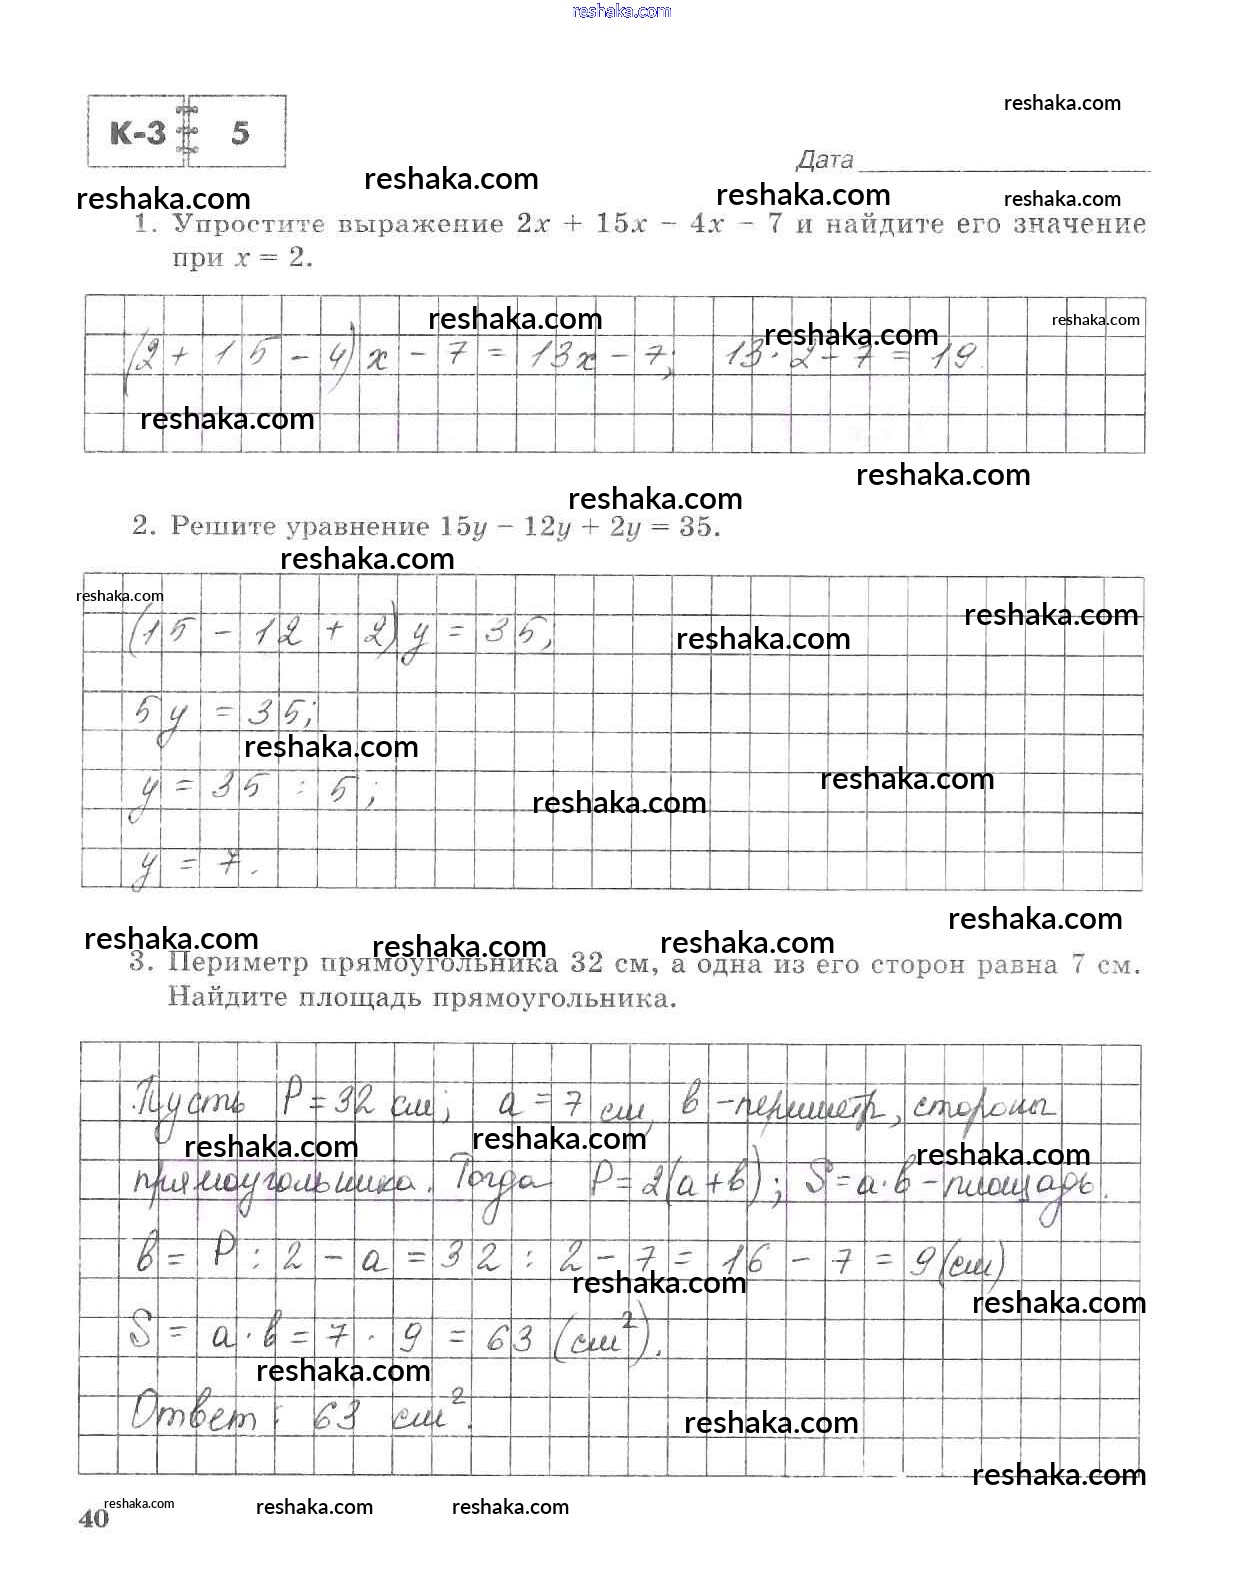 reshaka.com
reshaka.com
К-3 5
Дата
reshaka.com
reshaka.com reshaka.com reshaka.com
1. Упростите выражение 2x + 15x − 4x − 7 и найдите его значение
при x = 2.
reshaka.com reshaka.com reshaka.com
(2 + 15 − 4)x − 7 = 13x − 7; 13 · 2 − 7 = 19.
reshaka.com
reshaka.com
reshaka.com
2. Решите уравнение 15y − 12y + 2y = 35.
reshaka.com
reshaka.com
reshaka.com
(15 − 12 + 2)y = 35;
reshaka.com
5y = 35;
reshaka.com
reshaka.com
y = 35 : 5;
reshaka.com
y = 7.
reshaka.com
reshaka.com reshaka.com reshaka.com
3. Периметр прямоугольника 32 см, а одна из его сторон равна 7 см.
Найдите площадь прямоугольника.
Пусть P = 32 см; a = 7 см, в - периметр, стороны
reshaka.com reshaka.com reshaka.com
прямоугольника. Тогда P = 2(a + в); S = a · в - площадь.
в = P : 2 − a = 32 : 2 − 7 = 16 − 7 = 9 (см)
reshaka.com reshaka.com
S = a · в = 7 · 9 = 63 (см²).
reshaka.com
Ответ: 63 см².
reshaka.com
reshaka.com
40 reshaka.com reshaka.com reshaka.com